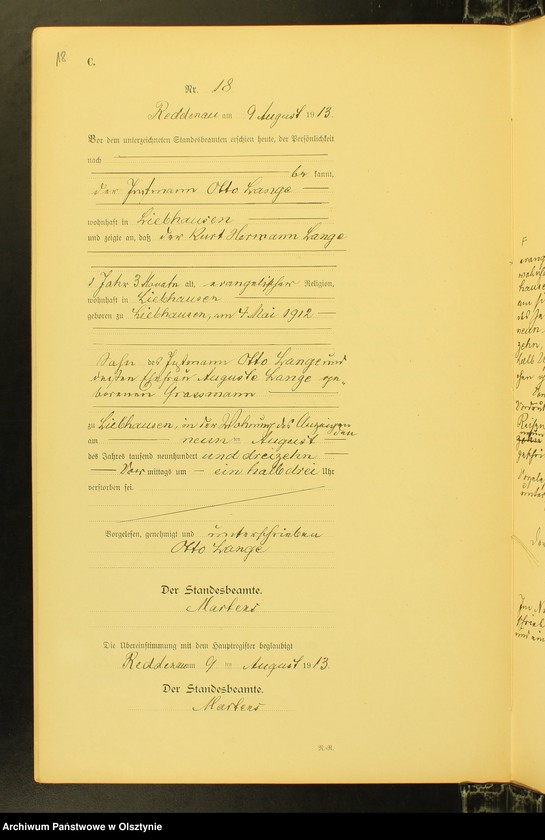 18
C.
Nr. 18
Reddenau am 9 August 1913.
Vor dem unterzeichneten Standesbeamten erschien heute, der Persönlichkeit
nach
be kannt,
der Instmann Otto Lange
wohnhaft in Liebhausen
und zeigte an, daß der Kurt Hermann Lange
1 Jahr 3 Monate alt, evangelischer Religion,
wohnhaft in Liebhausen
geboren zu Liebhausen, am 7 Mai 1912
Sohn des Instmann Otto Lange und
dessen Ehefrau Auguste Lange ge-
borenen Grassmann
zu Liebhausen, in der Wohnung des Anzeigen
den
am neunten August
des Jahres tausend neunhundert und dreizehn
Vor mittags um ein halb drei Uhr
verstorben sei.
Vorgelesen, genehmigt und unterschrieben
Otto Lange
Der Standesbeamte.
Martens
Die Übereinstimmung mit dem Hauptregister beglaubigt
Reddenau am 9 ten August 1913
Der Standesbeamte.
Martens
R.-R.
Archiwum Państwowe w Olsztynie